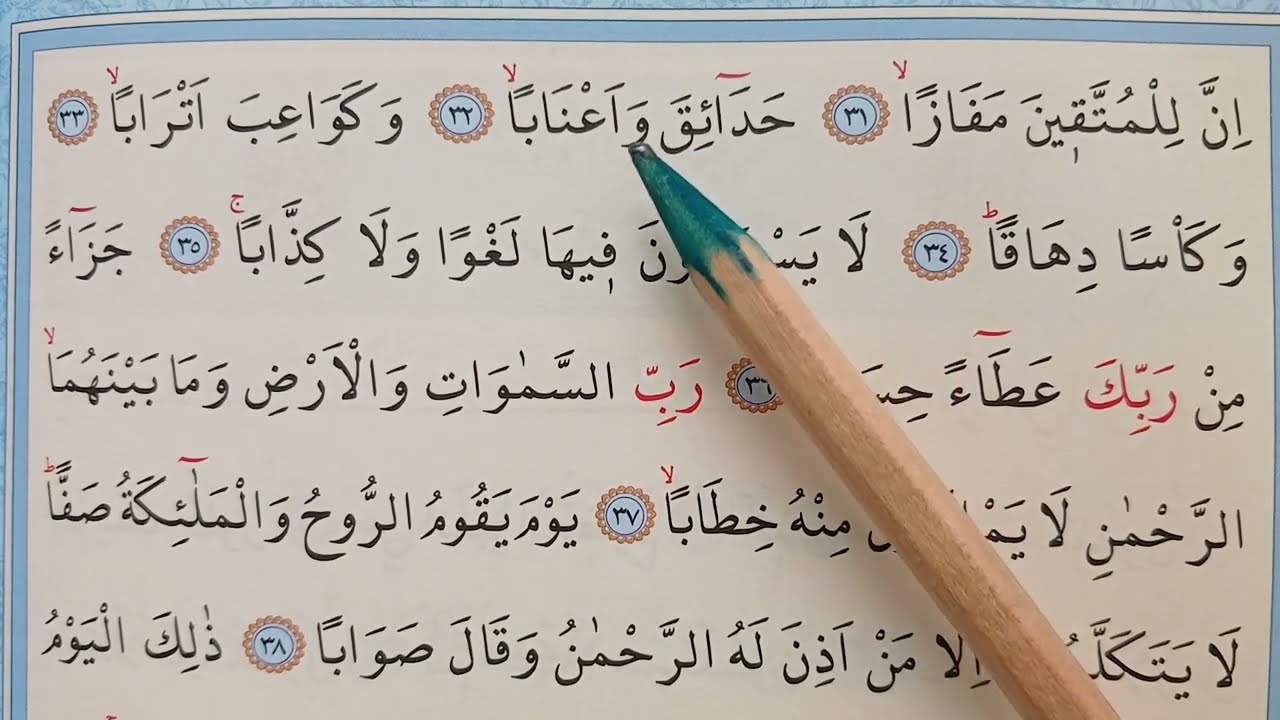 اِنَّ لِلْمُتَّقٖينَ مَفَازًاۙ ﴿٣١﴾ حَدَٓائِقَ وَاَعْنَابًاۙ ﴿٣٢﴾ وَكَوَاعِبَ اَتْرَابًاۙ ﴿٣٣﴾
وَكَاْسًا دِهَاقًاؕ ﴿٣٤﴾ لَا فٖيهَا لَغْوًا وَلَا كِذَّابًاۚ ﴿٣٥﴾ جَزَٓاءً
مِنْ رَبِّكَ عَطَٓاءً ﴿٣٦﴾ رَبِّ السَّمٰوَاتِ وَالْاَرْضِ وَمَا بَيْنَهُمَاۙ
الرَّحْمٰنِ لَا مِنْهُ خِطَابًاۙ ﴿٣٧﴾ يَوْمَ يَقُومُ الرُّوحُ وَالْمَلٰٓئِكَةُ صَفًّاؕ
لَا اِلَّا مَنْ اَذِنَ لَهُ الرَّحْمٰنُ وَقَالَ صَوَابًا ﴿٣٨﴾ ذٰلِكَ الْيَوْمُ